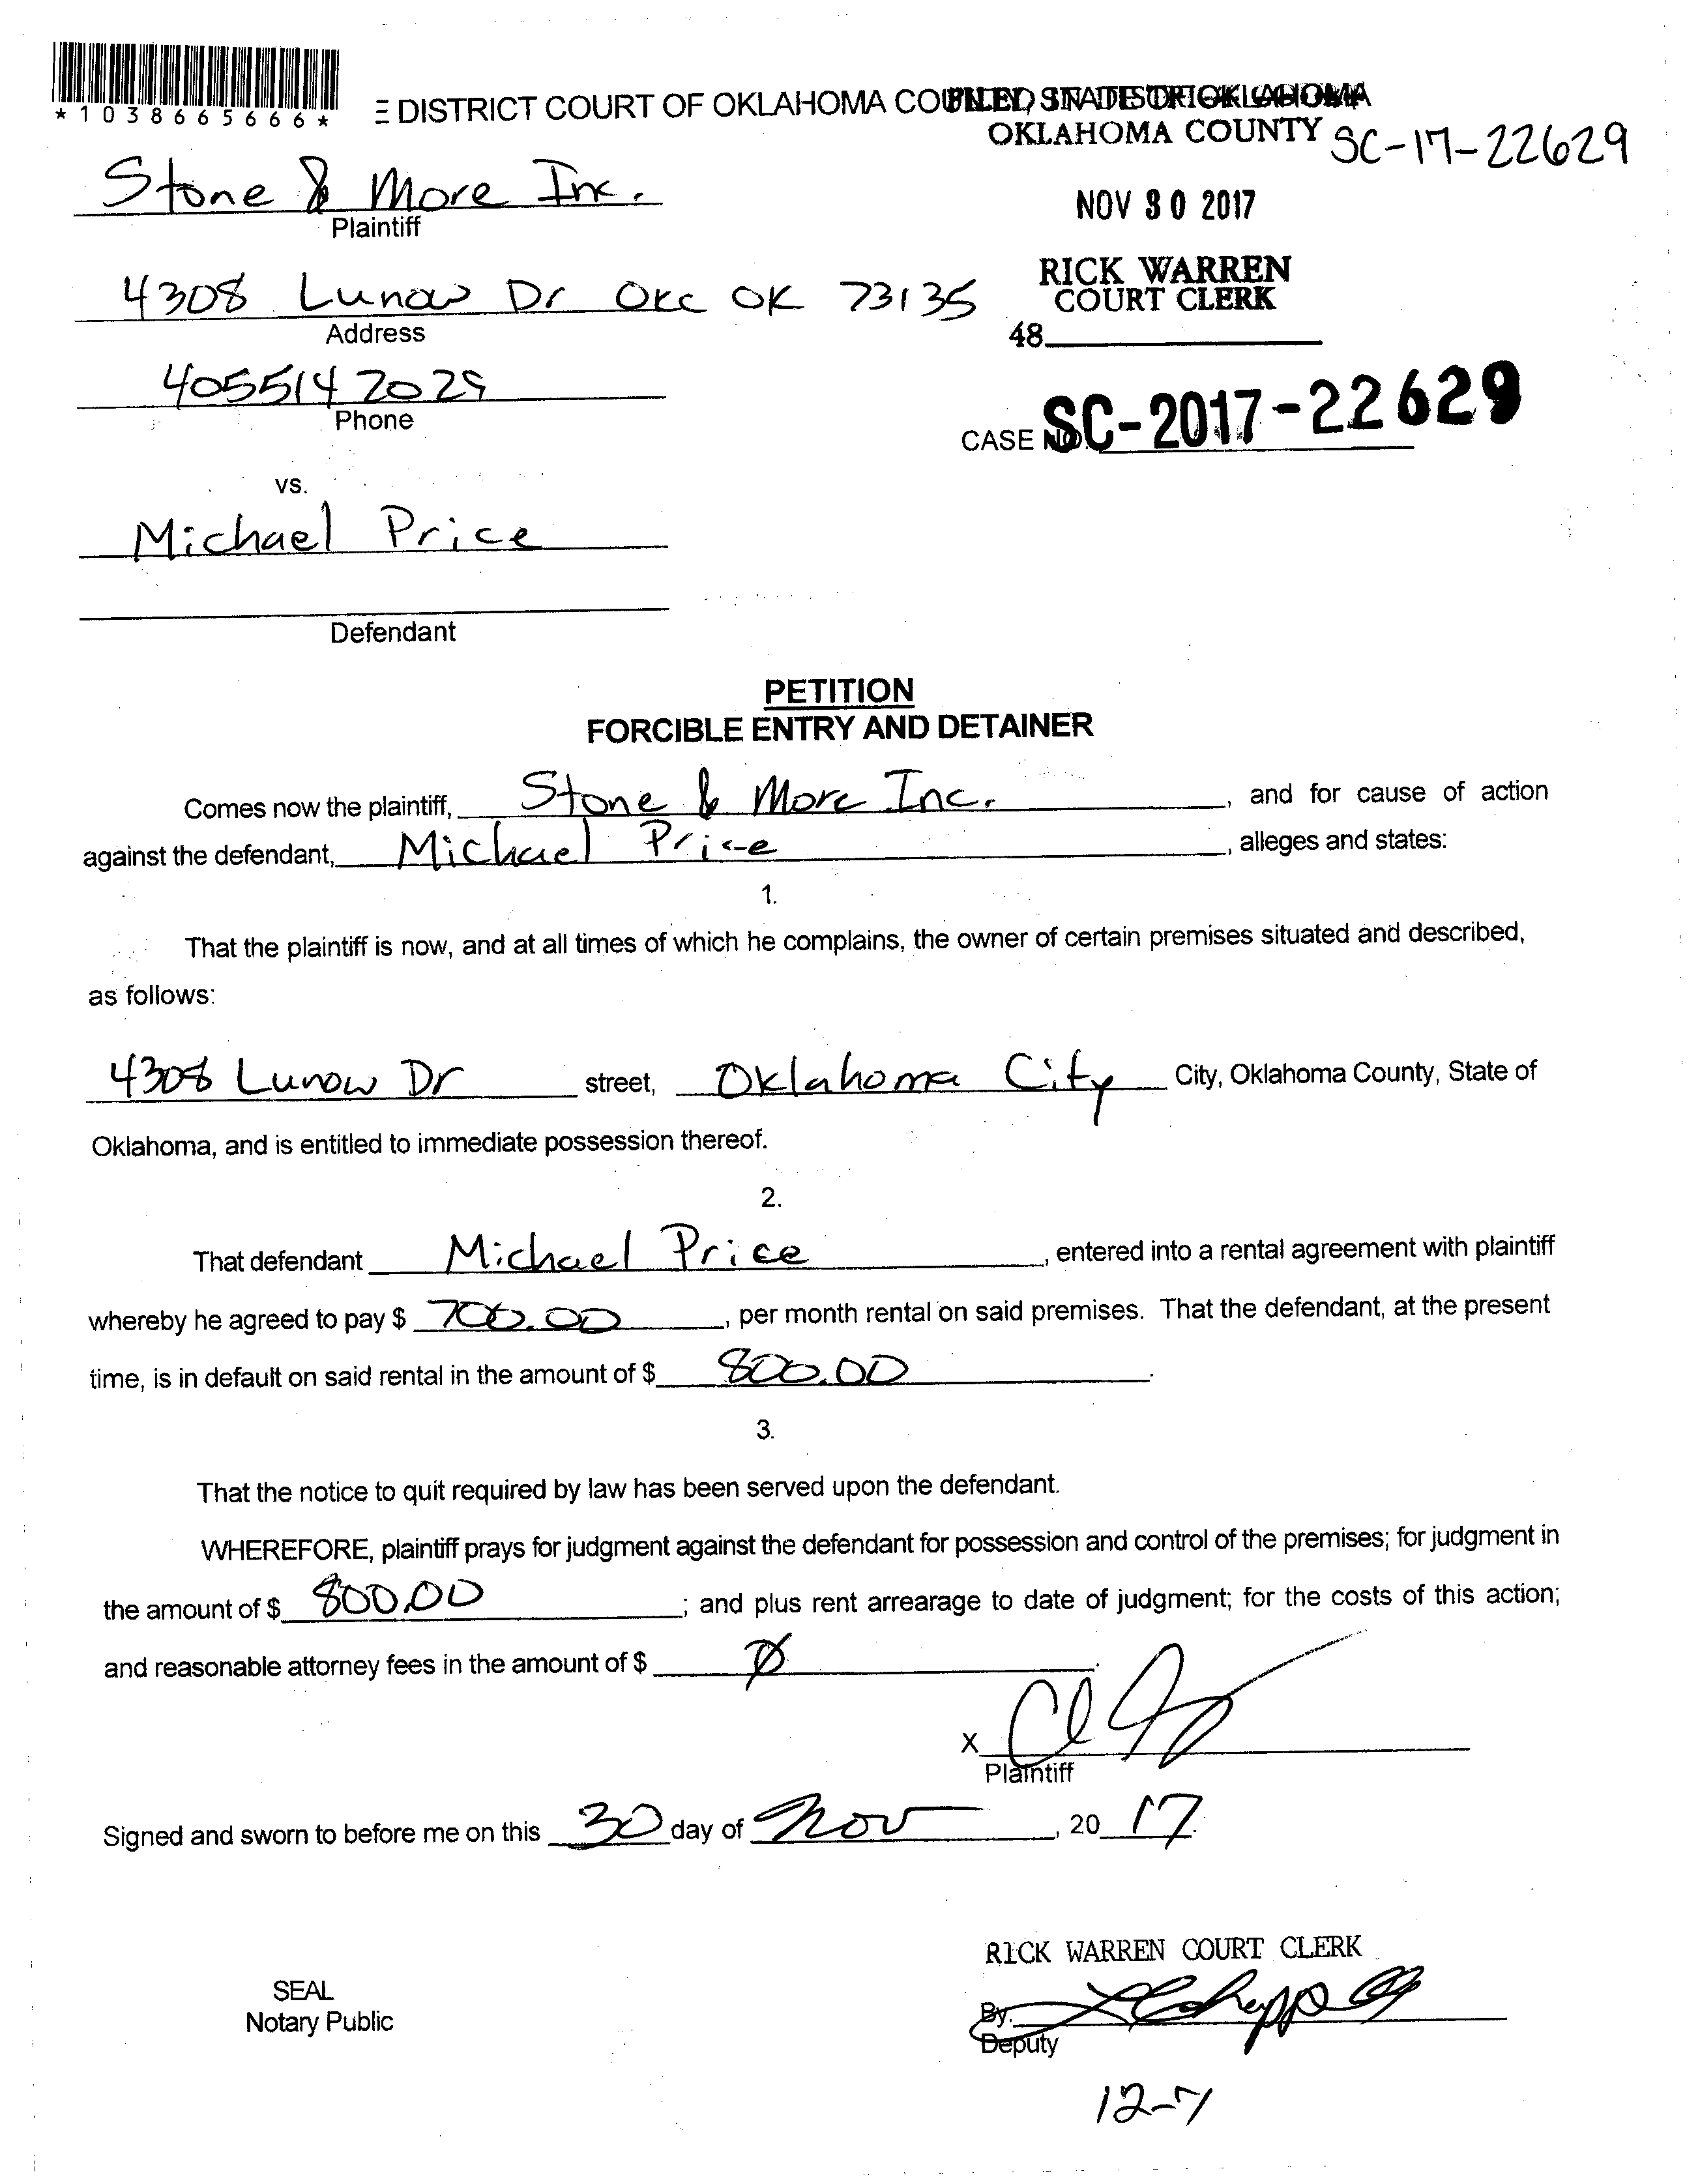 *1038665666*
E DISTRICT COURT OF OKLAHOMA COUNTY, STATE OF OKLAHOMA
FILED IN DISTRICT COURT
OKLAHOMA COUNTY SC-17-22629
Stone & More Inc.
Plaintiff
NOV 30 2017
4308 Lunow Dr OKC OK 73135
Address
RICK WARREN
COURT CLERK
48
4055142029
Phone
CASE NO. SC-2017-22629
vs.
Michael Price
Defendant
PETITION
FORCIBLE ENTRY AND DETAINER
Comes now the plaintiff, Stone & More Inc. , and for cause of action
against the defendant, Michael Price , alleges and states:
1.
That the plaintiff is now, and at all times of which he complains, the owner of certain premises situated and described,
as follows:
4308 Lunow Dr street, Oklahoma City City, Oklahoma County, State of
Oklahoma, and is entitled to immediate possession thereof.
2.
That defendant Michael Price , entered into a rental agreement with plaintiff
whereby he agreed to pay $ 700.00 , per month rental on said premises. That the defendant, at the present
time, is in default on said rental in the amount of $ 800.00 .
3.
That the notice to quit required by law has been served upon the defendant.
WHEREFORE, plaintiff prays for judgment against the defendant for possession and control of the premises; for judgment in
the amount of $ 800.00 ; and plus rent arrearage to date of judgment; for the costs of this action;
and reasonable attorney fees in the amount of $ Ø .
X
Plaintiff
Signed and sworn to before me on this 30 day of Nov , 20 17.
RICK WARREN COURT CLERK
SEAL
Notary Public
By.
Deputy
12-7